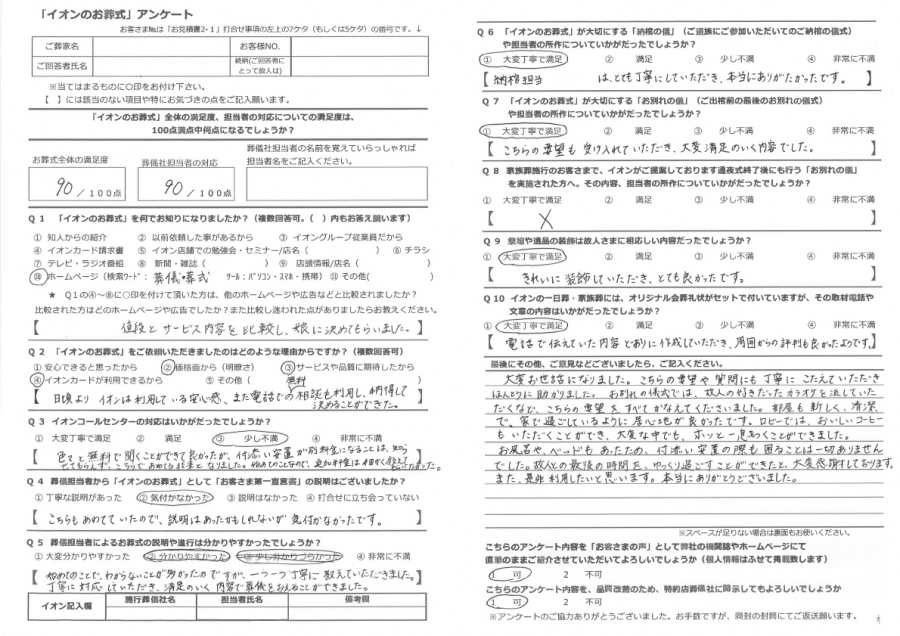 「イオンのお葬式」アンケート
お客さま№は「お見積書2-1」打合せ事項の左上の7ケタ（もしくは5ケタ）の番号です。↓
ご葬家名 お客様NO.
ご回答者氏名 続柄(ご回答者にとって故人は)
※当てはまるものに○印をお付け下さい。
【　】には該当のない項目や特にお気づきの点をご記入願います。
「イオンのお葬式」全体の満足度、担当者の対応についての満足度は、
100点満点中何点になるでしょうか？
お葬式全体の満足度
90 / 100点
葬儀社担当者の対応
90 / 100点
葬儀社担当者の名前を覚えていらっしゃれば
担当者名をご記入ください。
Q 1 「イオンのお葬式」を何でお知りになりましたか？（複数回答可。（　）内もお答え願います）
① 知人からの紹介 ② 以前依頼した事があるから ③ イオングループ従業員だから
④ イオンカード請求書 ⑤ イオン店舗での勉強会・セミナー/店名（ ） ⑥ チラシ
⑦ テレビ・ラジオ番組 ⑧ 新聞・雑誌（ ） ⑨ 店頭情報/店名（ ）
⑩ ホームページ（検索ワード：葬儀・葬式 ツール：パソコン・スマホ・携帯） ⑪ その他( )
★ Q1の④～⑧に○印を付けて頂いた方は、他のホームページや広告などと比較されましたか？
比較された方はどのホームページや広告でしたか？また比較し迷われた点がありましたらお教えください。
【 値段とサービス内容を比較し、娘に決めてもらいました。 】
Q 2 「イオンのお葬式」をご依頼いただきましたのはどのような理由からですか？（複数回答可）
① 安心できると思ったから ② 価格面から（明瞭さ） ③ サービスや品質に期待したから
④ イオンカードが利用できるから ⑤ その他（ ）
【 日頃よりイオンは利用している安心感、また電話での無料相談も利用し、納得して
決めることができた。 】
Q 3 イオンコールセンターの対応はいかがだったでしょうか？
① 大変丁寧で満足 ② 満足 ③ 少し不満 ④ 非常に不満
【 色々と無料で聞くことができて良かったが、付添い安置が別料金になることは、知ら
】
Q 4 葬儀担当者から「イオンのお葬式」として「お客さま第一宣言書」の説明はございましたか？
① 丁寧な説明があった ② 気付かなかった ③ 説明はなかった ④ 打合せに立ち会っていない
【 こちらもあわてていたので、説明はあったかもしれないが気付かなかったです。 】
Q 5 葬儀担当者によるお葬式の説明や進行は分かりやすかったでしょうか？
① 大変分かりやすかった ② 分かりやすかった ③ 少し分かりづらかった ④ 非常に不満
【 始めてのことで、わからないことが多かったのですが、一つ一つ丁寧に教えていただきました。
丁寧に対応していただき、満足のいく内容で葬儀をおえることができました。 】
イオン記入欄 施行葬儀社名 担当者氏名 備考欄
Q 6 「イオンのお葬式」が大切にする「納棺の儀」（ご遺族にご参加いただいてのご納棺の儀式）
や担当者の所作についていかがだったでしょうか？
① 大変丁寧で満足 ② 満足 ③ 少し不満 ④ 非常に不満
【 納棺担当 は、とても丁寧にしていただき、本当にありがたかったです。 】
Q 7 「イオンのお葬式」が大切にする「お別れの儀」（ご出棺前の最後のお別れの儀式）
や担当者の所作についていかがだったでしょうか？
① 大変丁寧で満足 ② 満足 ③ 少し不満 ④ 非常に不満
【 こちらの要望も受け入れていただき、大変満足のいく内容でした。 】
Q 8 家族葬施行のお客さまで、イオンがご提案しております通夜式終了後にも行う「お別れの儀」
を実施された方へ。その内容、担当者の所作についていかがだったでしょうか？
① 大変丁寧で満足 ② 満足 ③ 少し不満 ④ 非常に不満
【 ╳ 】
Q 9 祭壇や遺品の装飾は故人さまに相応しい内容だったでしょうか？
① 大変丁寧で満足 ② 満足 ③ 少し不満 ④ 非常に不満
【 きれいに装飾していただき、とても良かったです。 】
Q 10 イオンの一日葬・家族葬には、オリジナル会葬礼状がセットで付いていますが、その取材電話や
文章の内容はいかがだったでしょうか？
① 大変丁寧で満足 ② 満足 ③ 少し不満 ④ 非常に不満
【 電話で伝えていた内容どおりに作成していただき、周囲からの評判も良かったようです。】
最後にその他、ご意見などございましたら、ご記入ください。
大変お世話になりました。こちらの要望や質問にも丁寧にこたえていただき
ほんとうに助かりました。お別れの儀式では、故人の好きだったカラオケを流していた
だくなど、こちらの要望をすべてかなえてくださいました。部屋も新しく、清潔
で、家で過ごしているように居心地が良かったです。ロビーでは、おいしいコーヒー
もいただくことができ、大変な中でも、ホッと一息つくことができました。
お風呂や、ベッドもあったため、付添い安置の際も困ることは一切ありません
でした。故人との最後の時間を、ゆっくり過ごすことができたと、大変感謝しております。
また、是非利用したいと思います。本当にありがとうございました。
※スペースが足りない場合は裏面もお使いください。
こちらのアンケート内容を「お客さまの声」として弊社の機関誌やホームページにて
直筆のままご紹介させていただいてよろしいでしょうか（個人情報はふせて掲載致します）
1 可 2 不可
こちらのアンケート内容を、品質改善のため、特約店葬儀社に開示してもよろしいでしょうか
1 可 2 不可
※アンケートのご協力ありがとうございました。お手数ですが、同封の封筒にてご返送願います。